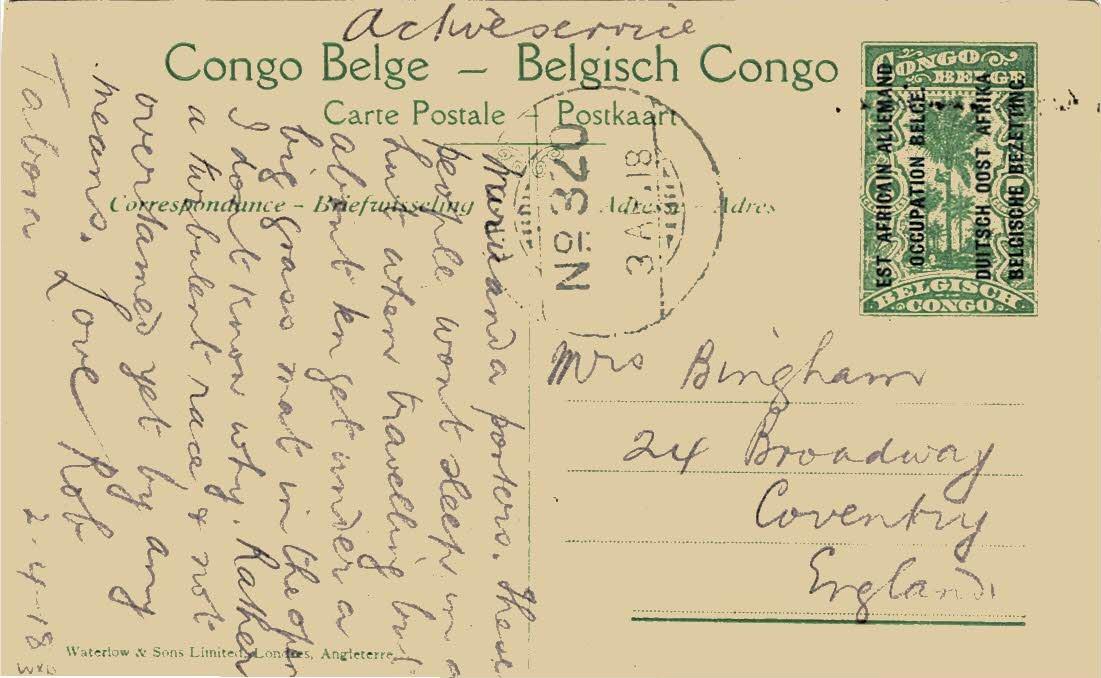 Active service
Congo Belge – Belgisch Congo
Carte Postale – Postkaart
Correspondance – Briefwisseling
Adresse – Adres
CONGO
BELGE
EST AFRICAIN ALLEMAND
OCCUPATION BELGE.
DUITSCH OOST AFRIKA
BELGISCHE BEZETTING.
BELGISCH
CONGO
No 320
3 A 18
Mrs Bingham
24 Broadway
Coventry
England.
porters. These
people wont sleep in a
hut when travelling but
about kn get under a
big grass mat in the open
I dont know why. Rather
a turbulent race & not
overtamed yet by any
means. Love Rob
Tabora 2-4-18
Waterlow & Sons Limited, Londres, Angleterre.